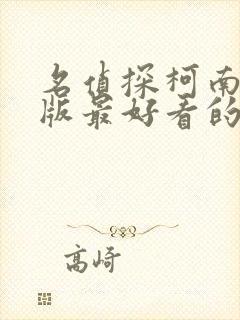 名侦探柯南
版最好看的
高崎